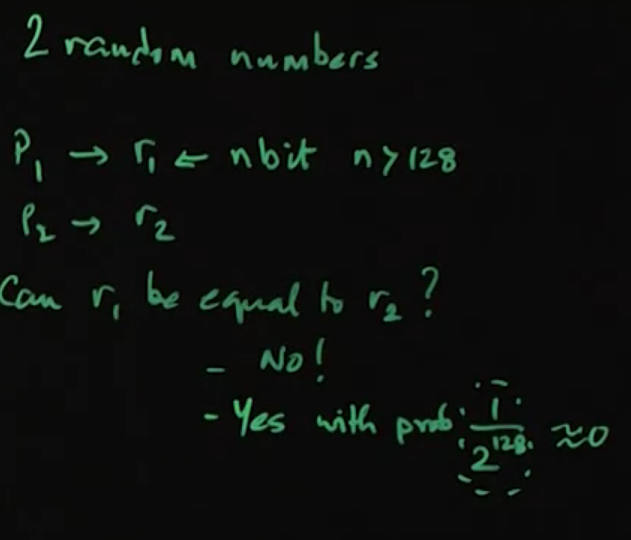 2 random numbers
P₁ → r₁ ← n bit n > 128
P₂ → r₂
Can r₁ be equal to r₂ ?
- No!
- Yes with prob. 1/2¹²⁸ ≈ 0